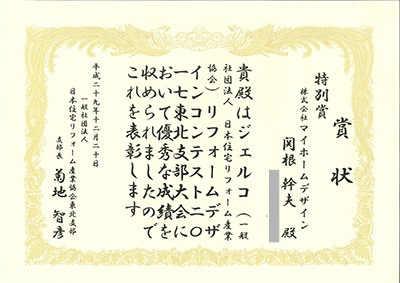 賞状
特別賞
株式会社マイホームデザイン
関根幹夫殿
貴殿はジェルコ(一般
社団法人 日本住宅リフォーム産業
協会)リフォームデザ
インコンテスト二〇
一七東北支部大会に
おいて優秀な成績を
収められましたので
これを表彰します
平成二十九年十二月二十日
一般社団法人
日本住宅リフォーム産業協会東北支部
支部長 菊地智彦